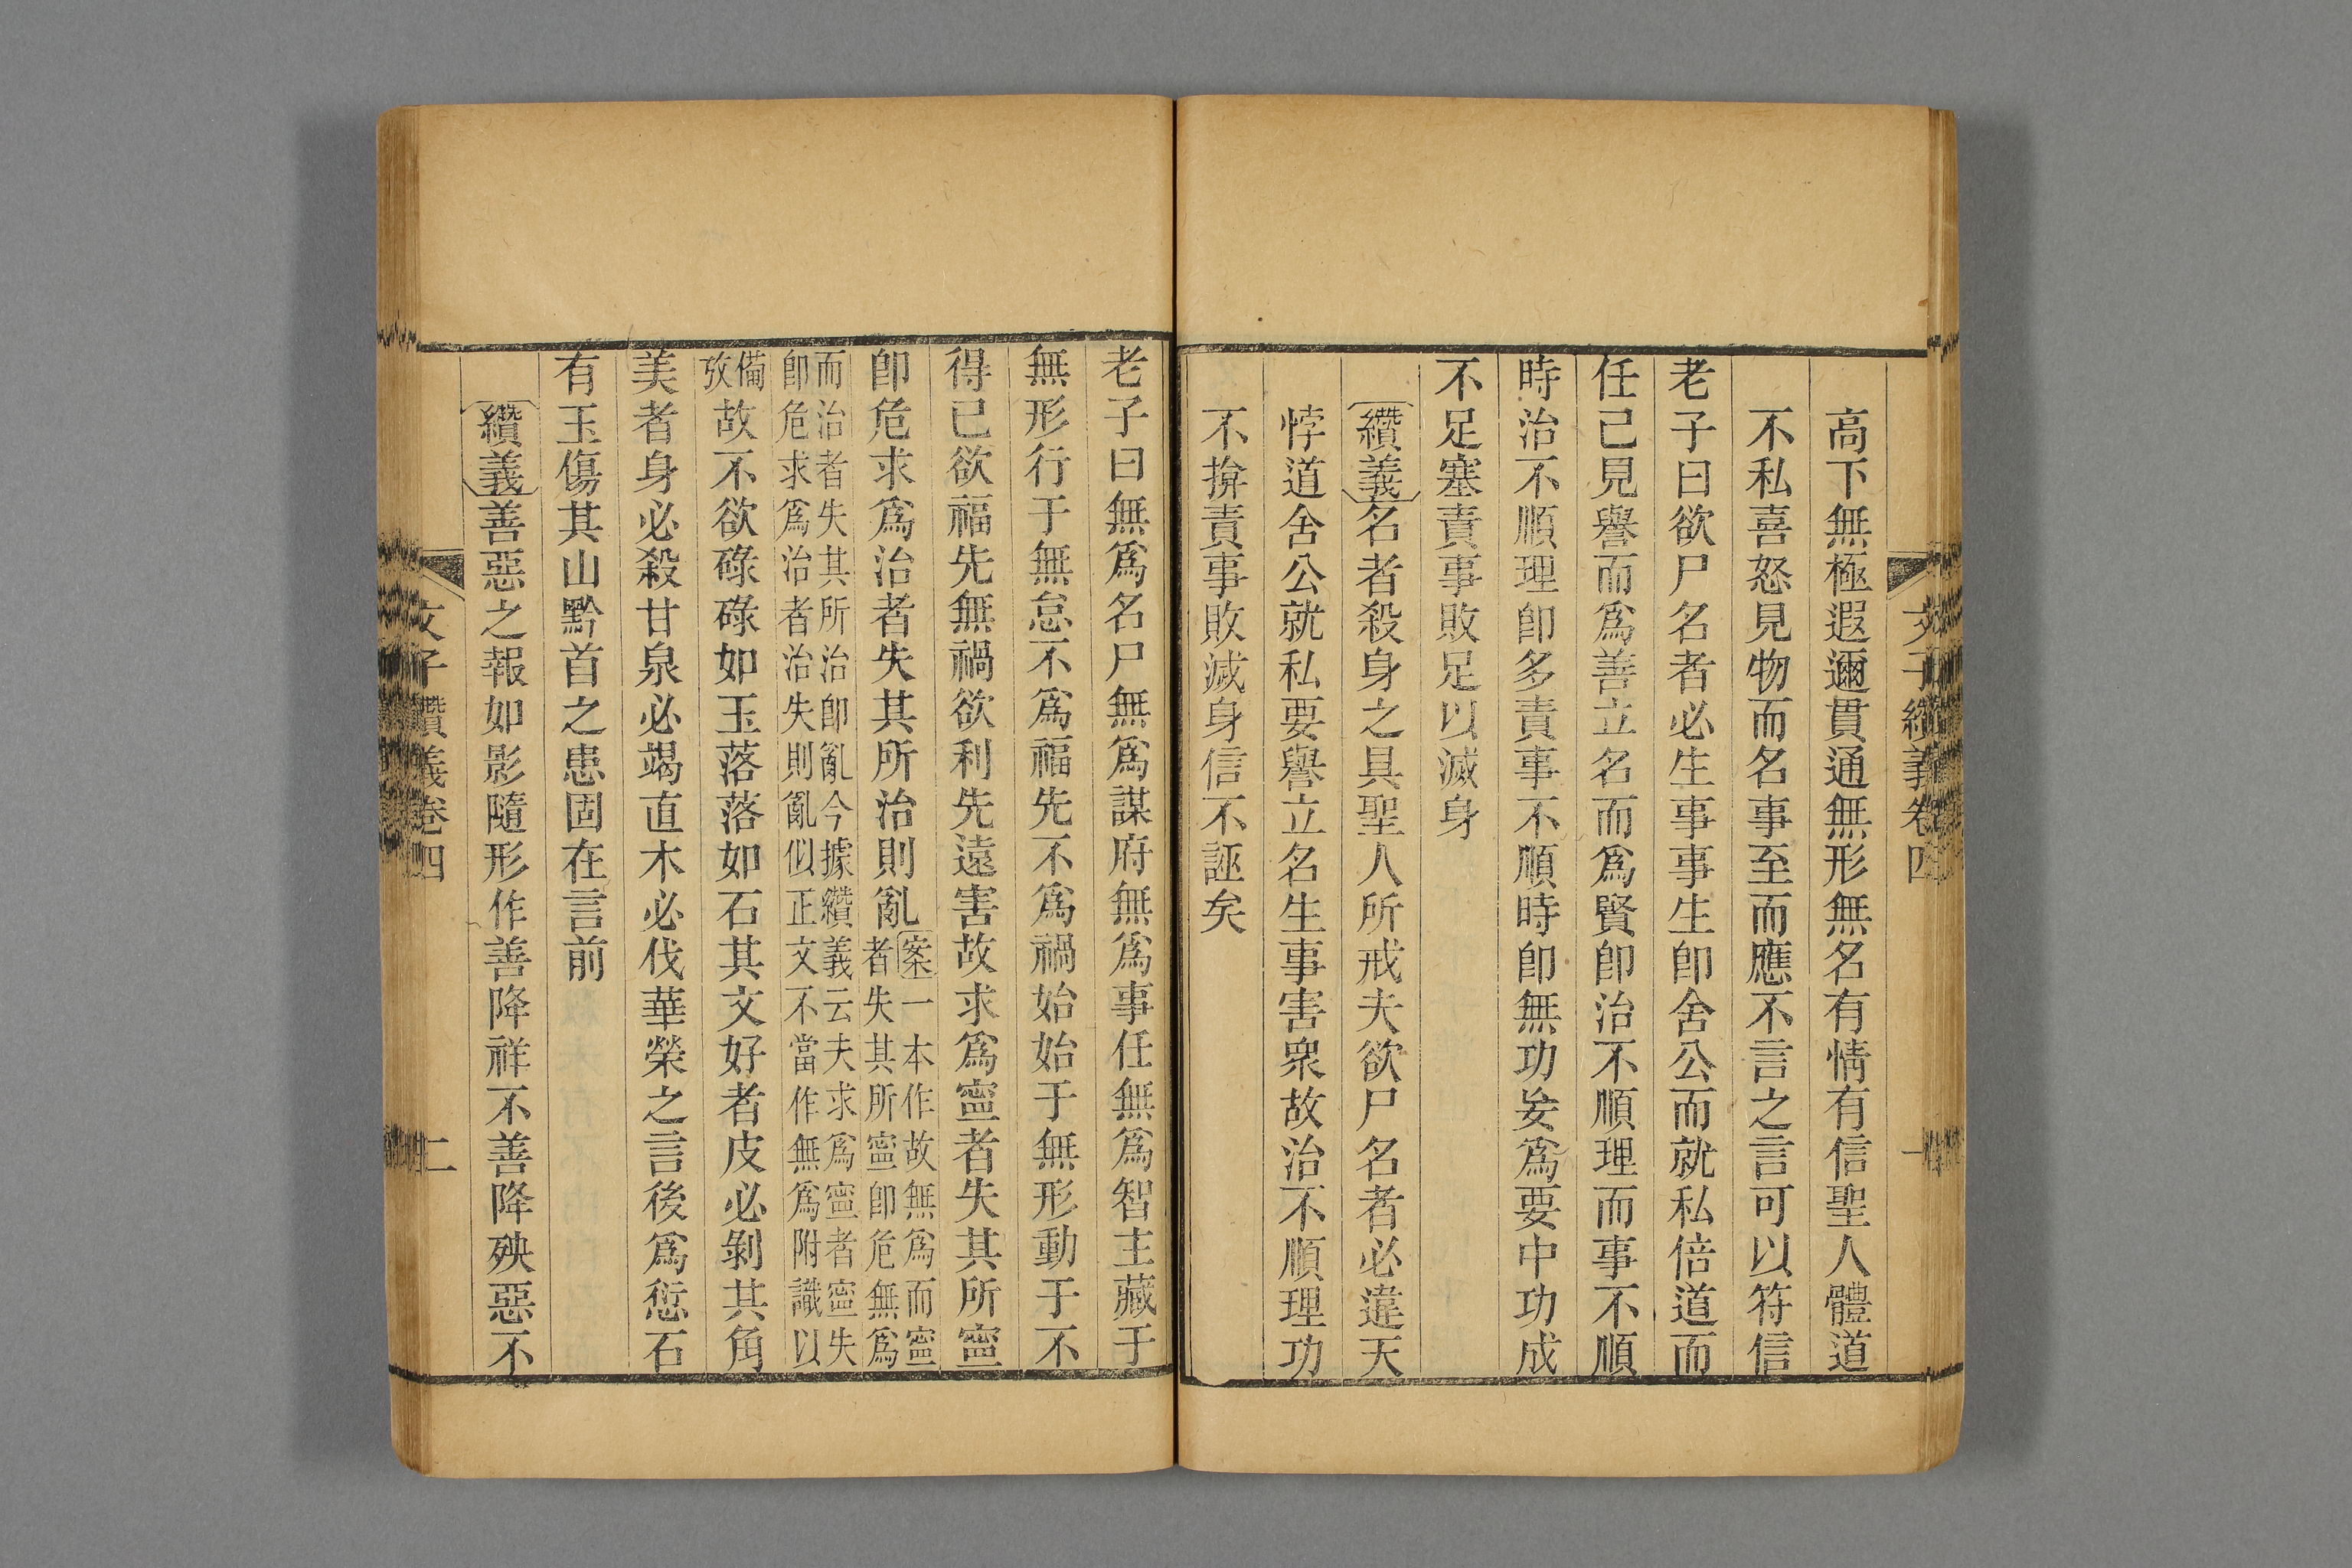 文子纘義卷四 一
高下無極遐邇貫通無形無名有情有信聖人體道
不私喜怒見物而名事至而應不言之言可以符信
老子曰欲尸名者必生事事生卽舍公而就私倍道而
任己見譽而爲善立名而爲賢卽治不順理而事不順
時治不順理卽多責事不順時卽無功妄爲要中功成
不足塞責事敗足以滅身
纘義名者殺身之具聖人所戒夫欲尸名者必違天
悖道舍公就私要譽立名生事害衆故治不順理功
不揜責事敗滅身信不誣矣
老子曰無爲名尸無爲謀府無爲事任無爲智主藏于
無形行于無怠不爲福先不爲禍始始于無形動于不
得已欲福先無禍欲利先遠害故求爲寧者失其所寧
卽危求爲治者失其所治則亂案一本作故無爲而寧者失其所寧卽危無爲
而治者失其所治卽亂今據纘義云夫求爲寧者寧失卽危求爲治者治失則亂似正文不當作無爲附識以
備攷故不欲碌碌如玉落落如石其文好者皮必剝其角
美者身必殺甘泉必竭直木必伐華榮之言後爲愆石
有玉傷其山黔首之患固在言前
纘義善惡之報如影隨形作善降祥不善降殃惡不
文子纘義卷四 二